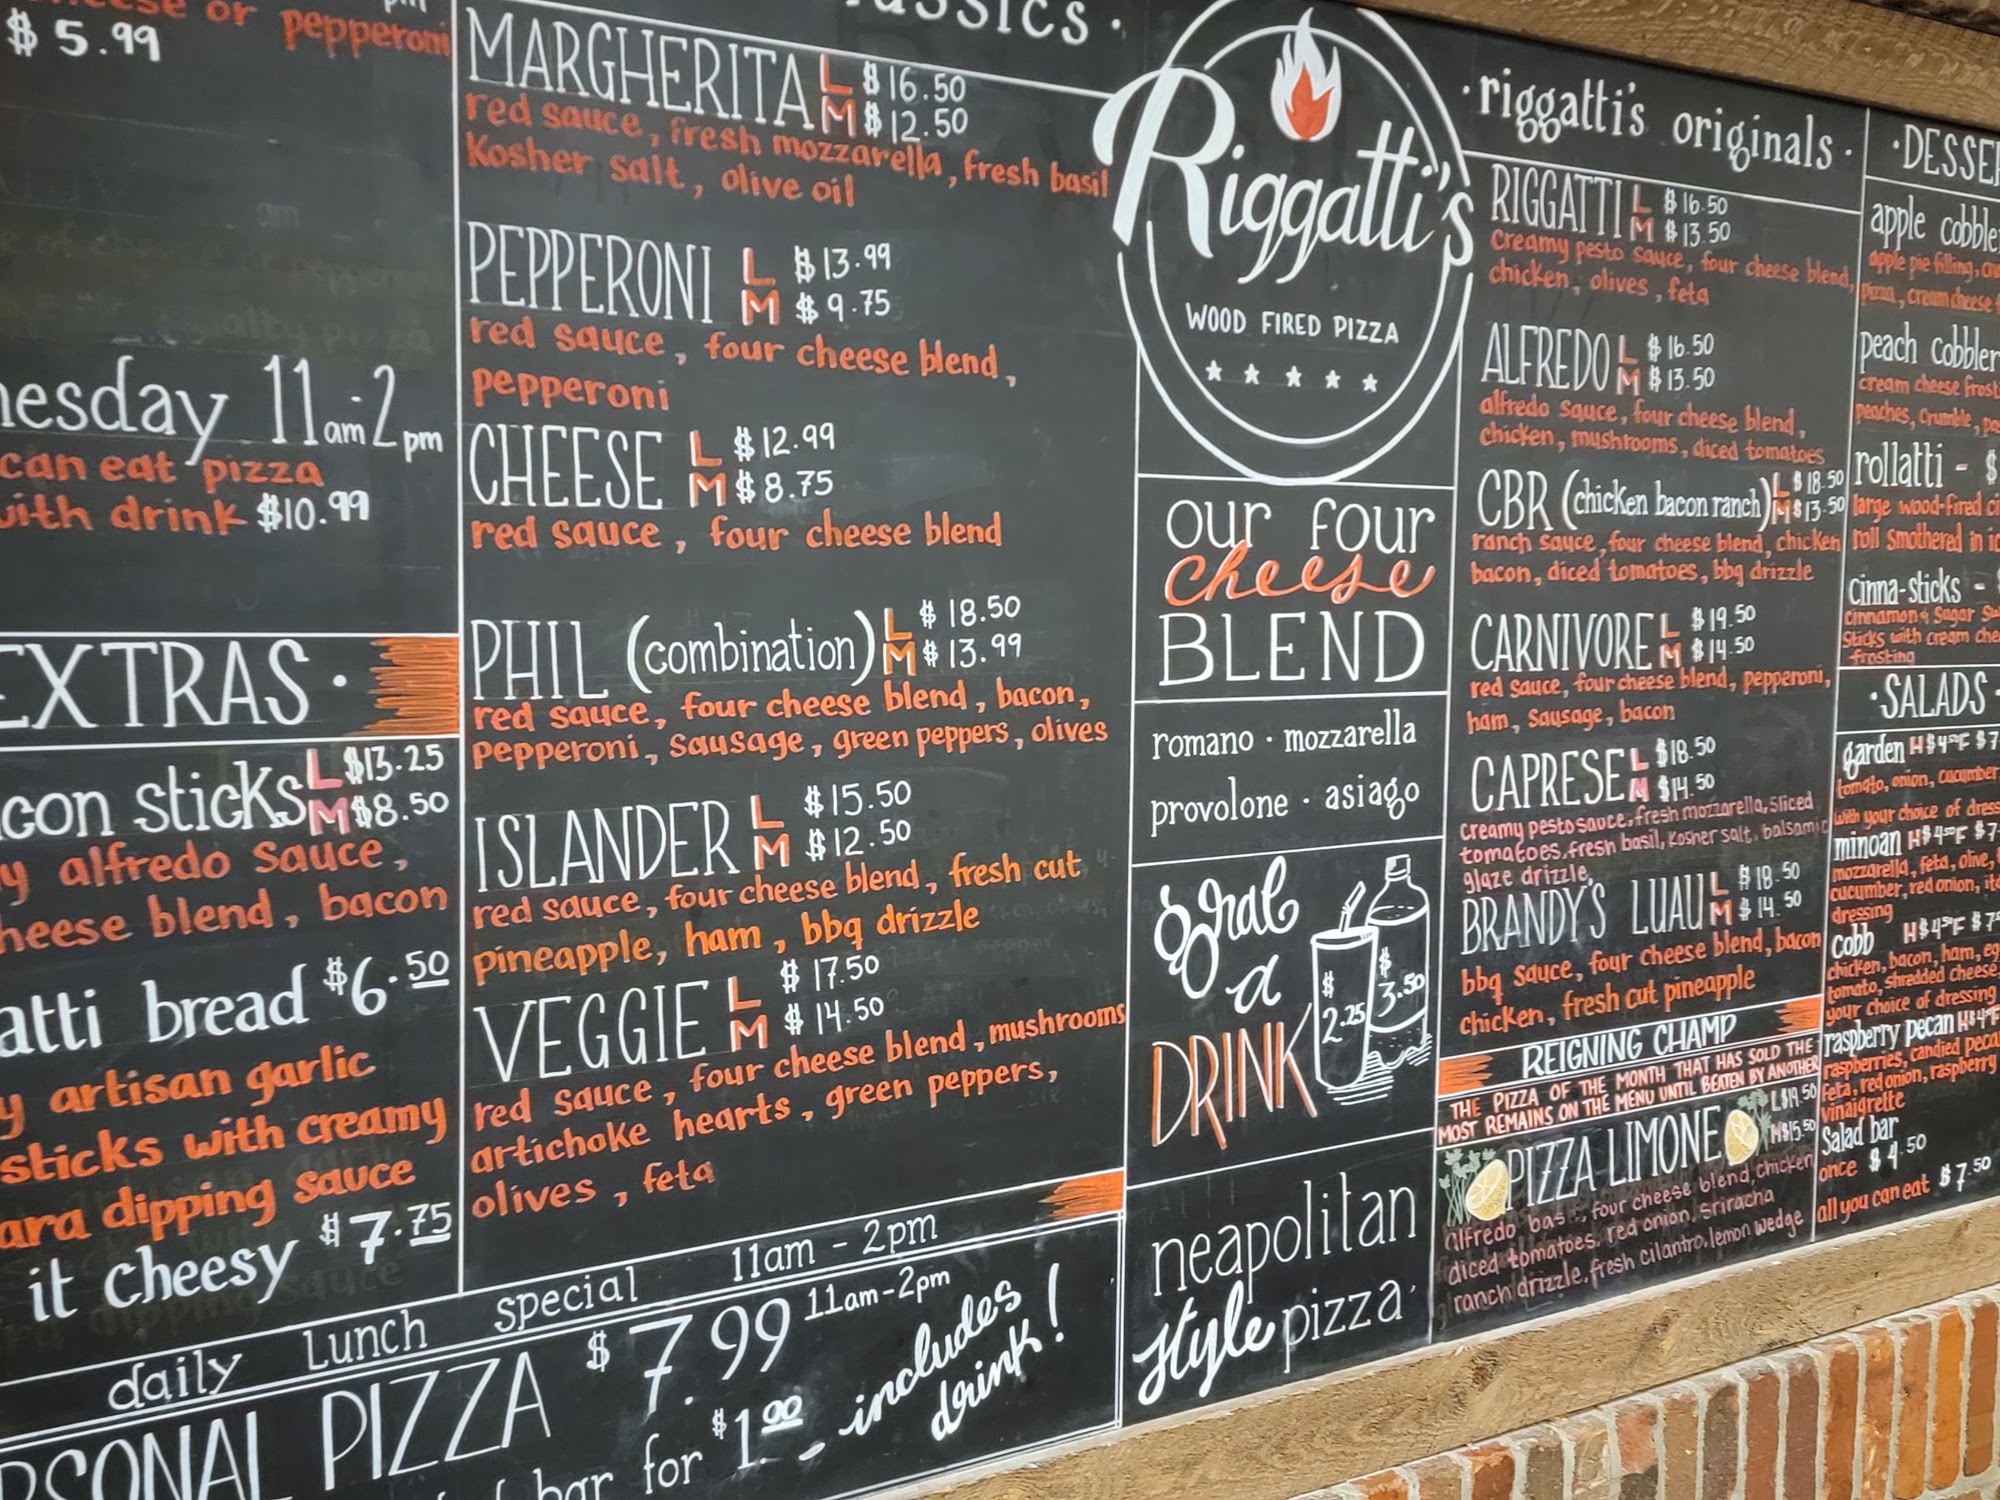 or pepperoni
$5.99
nesday 11am-2pm
can eat pizza
with drink $10.99
EXTRAS ·
sticks L $13.25
M $8.50
alfredo sauce,
cheese blend, bacon
bread $6.50
artisan garlic
sticks with creamy
dipping sauce
it cheesy $7.75
daily Lunch special 11am - 2pm
PIZZA $7.99 11am-2pm
bar for $1.00 - includes
drink!
MARGHERITA L $16.50
M $12.50
red sauce, fresh mozzarella, fresh basil
Kosher salt, olive oil
PEPPERONI L $13.99
M $9.75
red sauce, four cheese blend,
pepperoni
CHEESE L $12.99
M $8.75
red sauce, four cheese blend
PHIL (combination) L $18.50
M $13.99
red sauce, four cheese blend, bacon,
pepperoni, sausage, green peppers, olives
ISLANDER L $15.50
M $12.50
red sauce, four cheese blend, fresh cut
pineapple, ham, bbq drizzle
VEGGIE L $17.50
M $14.50
red sauce, four cheese blend, mushrooms
artichoke hearts, green peppers,
olives, feta
Riggatti's
WOOD FIRED PIZZA
our four
cheese
BLEND
romano · mozzarella
provolone · asiago
grab
a
DRINK
$2.25
$3.50
neapolitan
style pizza
· riggatti's originals ·
RIGGATTI L $16.50
M $13.50
Creamy pesto sauce, four cheese blend,
chicken, olives, feta
ALFREDO L $16.50
M $13.50
alfredo sauce, four cheese blend,
chicken, mushrooms, diced tomatoes
CBR (chicken bacon ranch) L $18.50
M $13.50
ranch sauce, four cheese blend, chicken
bacon, diced tomatoes, bbq drizzle
CARNIVORE L $19.50
M $14.50
red sauce, four cheese blend, pepperoni,
ham, sausage, bacon
CAPRESE L $18.50
M $14.50
Creamy pesto sauce, fresh mozzarella, sliced
tomatoes, fresh basil, Kosher salt, balsamic
glaze drizzle,
BRANDY'S LUAU L $18.50
M $14.50
bbq sauce, four cheese blend, bacon
chicken, fresh cut pineapple
REIGNING CHAMP
THE PIZZA OF THE MONTH THAT HAS SOLD THE
MOST REMAINS ON THE MENU UNTIL BEATEN BY ANOTHER
PIZZA LIMONE L $19.50
M $15.50
alfredo base, four cheese blend, chicken
diced tomatoes, red onion, sriracha
ranch drizzle, fresh cilantro, lemon wedge
apple
apple pie filling,
pizza, cream cheese
peach cobbler
cream cheese
peaches, crumble,
rollatti - $
large wood-fired
roll smothered in
cinna-sticks -
cinnamon & sugar
sticks with cream
frosting
· SALADS ·
garden H $4.50 F $7.
tomato, onion, cucumber
with your choice of
minoan H $4.50 F $7.
mozzarella, feta, olive,
cucumber, red onion,
dressing
cobb H $4.50 F $7.
chicken, bacon, ham,
tomato, shredded cheese,
your choice of dressing
raspberry pecan H $4.50 F
raspberries, candied
feta, red onion, raspberry
vinaigrette
Salad bar
once $4.50
all you can eat $7.50